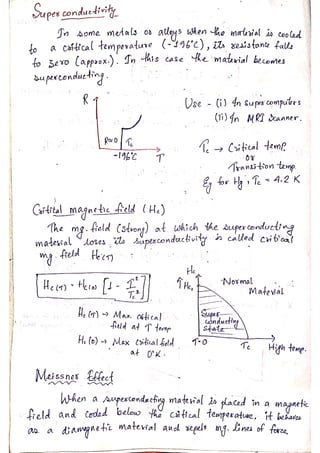 Super conductivity
In some metals or alloys when the material is cooled
to a critical temperature (-196°C), its resistance falls
to zero (approx.). In this case the material becomes
superconducting.
R
R=0
Tc
-196°C
T
Use - (i) In super computers
(ii) In MRI Scanner.
Tc → Critical temp.
or
Transition temp.
Eg for Hg, Tc = 4.2 K
Critical magnetic field (Hc)
The mg. field (strong) at which the superconducting
material loses its superconductivity is called critical
mg. field Hc(T)
Hc(T) = Hc(0) [1 - T²/Tc²]
Hc(T) → Max critical
field at T temp
Hc(0) → Max critical field
at 0°K.
Hc
↑Hc₀
Normal
Material
Super
conducting
State
T=0
Tc
High temp.
Meissner Effect
When a superconducting material is placed in a magnetic
field and cooled below the critical temperature, it behaves
as a diamagnetic material and repels mg. lines of force.